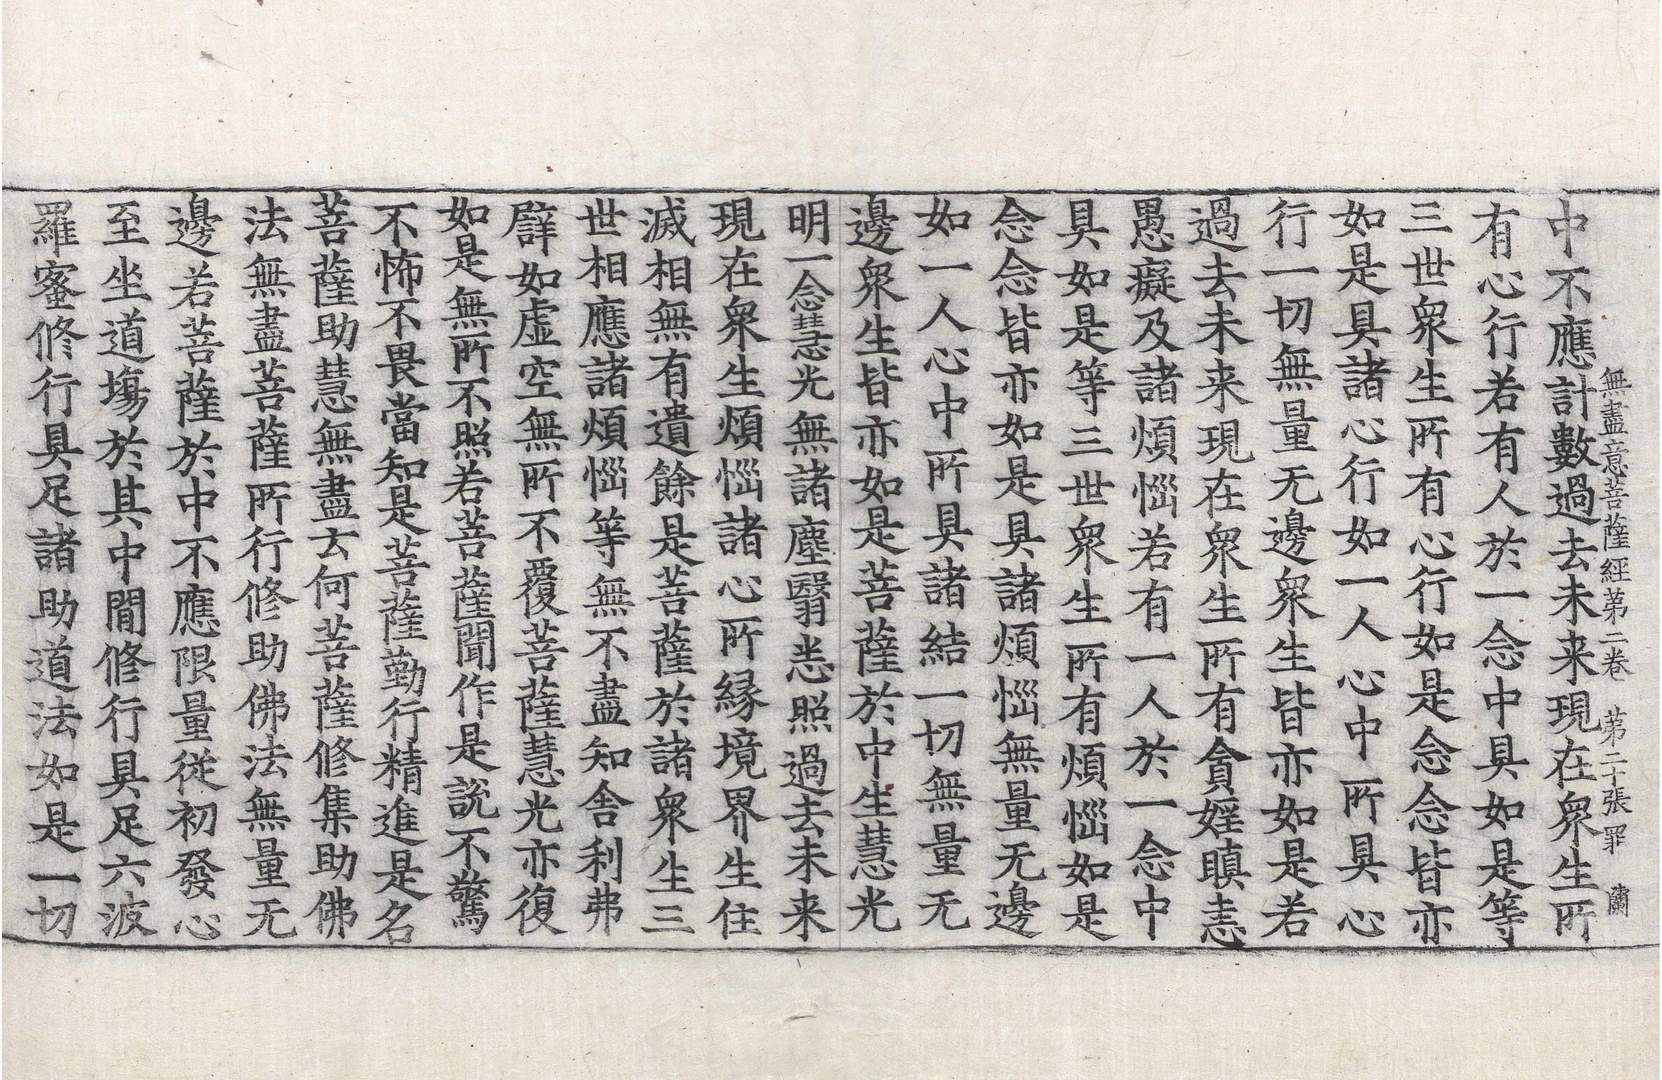 無盡意菩薩經第二卷　第二十張　罪　蘭
中不應計數過去未来現在衆生所
有心行若有人於一念中具如是等
三世衆生所有心行如是念念皆亦
如是具諸心行如一人心中所具心
行一切無量无邊衆生皆亦如是若
過去未来現在衆生所有貪婬瞋恚
愚癡及諸煩惱若有一人於一念中
具如是等三世衆生所有煩惱如是
念念皆亦如是具諸煩惱無量无邊
如一人心中所具諸結一切無量无
邊衆生皆亦如是菩薩於中生慧光
明一念慧光無諸塵翳悉照過去未来
現在衆生煩惱諸心所縁境界生住
滅相無有遺餘是菩薩於諸衆生三
世相應諸煩惱等無不盡知舎利弗
譬如虚空無所不覆菩薩慧光亦復
如是無所不照若菩薩聞作是説不驚
不怖不畏當知是菩薩勤行精進是名
菩薩助慧無盡云何菩薩修集助佛
法無盡菩薩所行修助佛法無量无
邊若菩薩於中不應限量従初發心
至坐道塲於其中間修行具足六波
羅蜜修行具足諸助道法如是一切